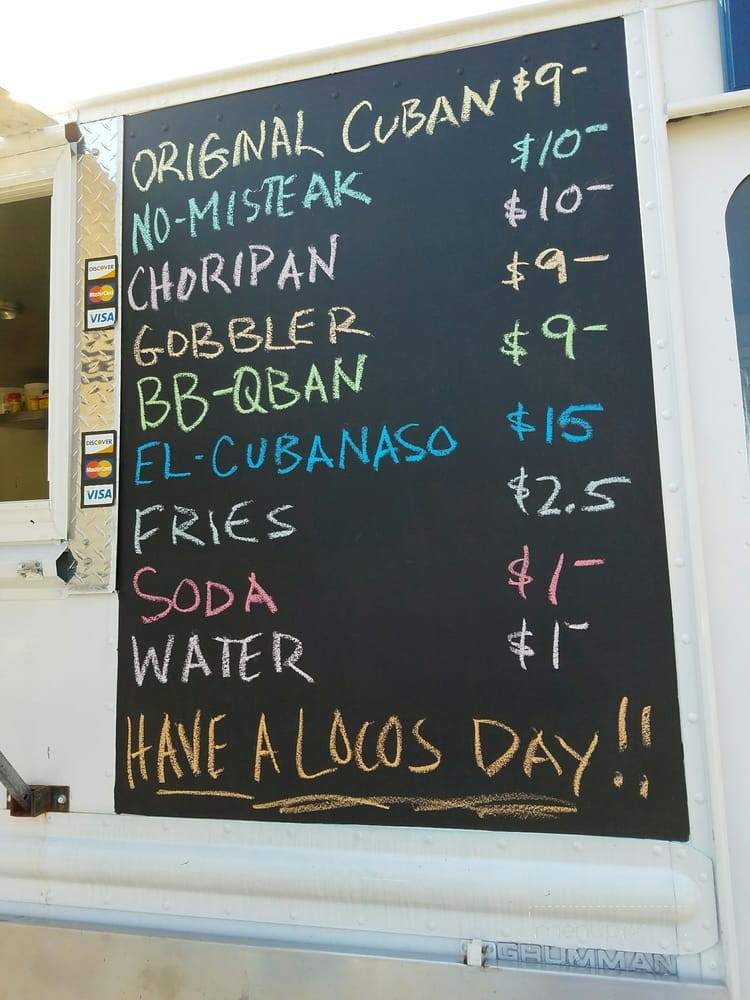 ORIGINAL CUBAN $9-
NO-MISTEAK $10-
CHORIPAN $10-
GOBBLER $9-
BB-QBAN $9-
EL-CUBANASO $15
FRIES $2.5
SODA $1-
WATER $1-
HAVE A LOCOS DAY!!
DISCOVER
MasterCard
VISA
DISCOVER
MasterCard
VISA
GRUMMAN